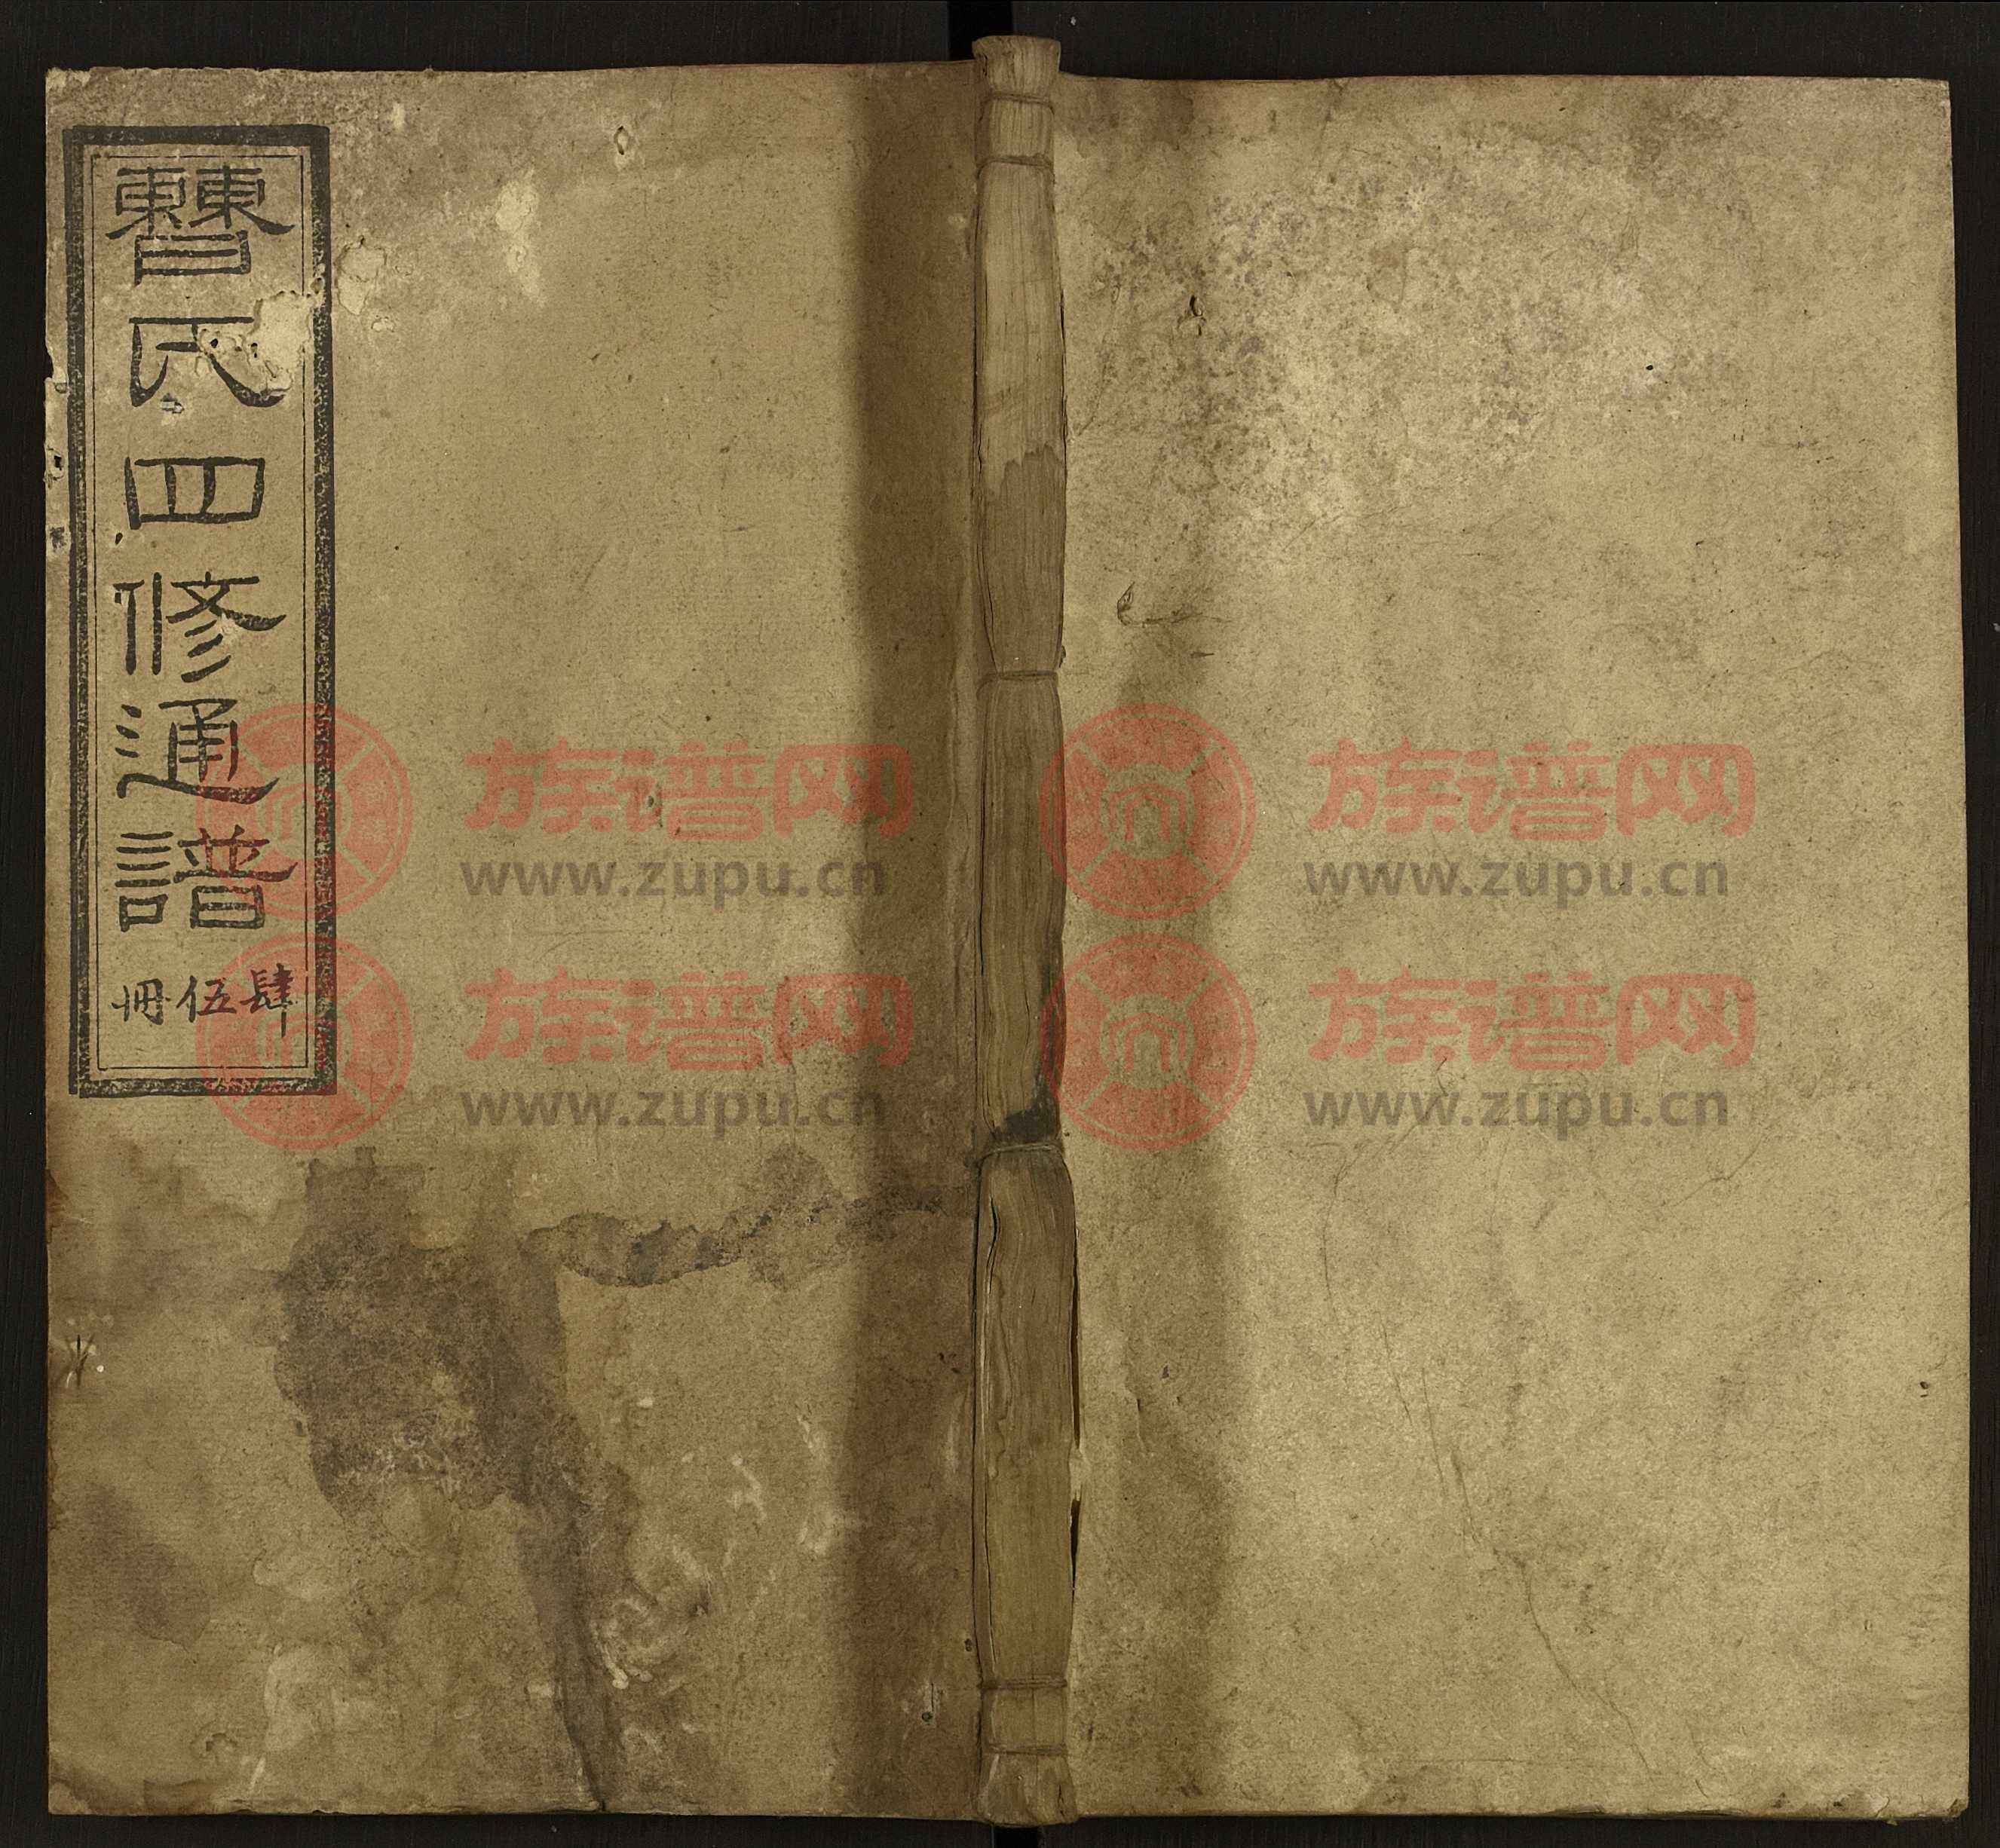 㯥氏四修通譜
肆伍冊
族谱网
www.zupu.cn
族谱网
www.zupu.cn
族谱网
www.zupu.cn
族谱网
www.zupu.cn